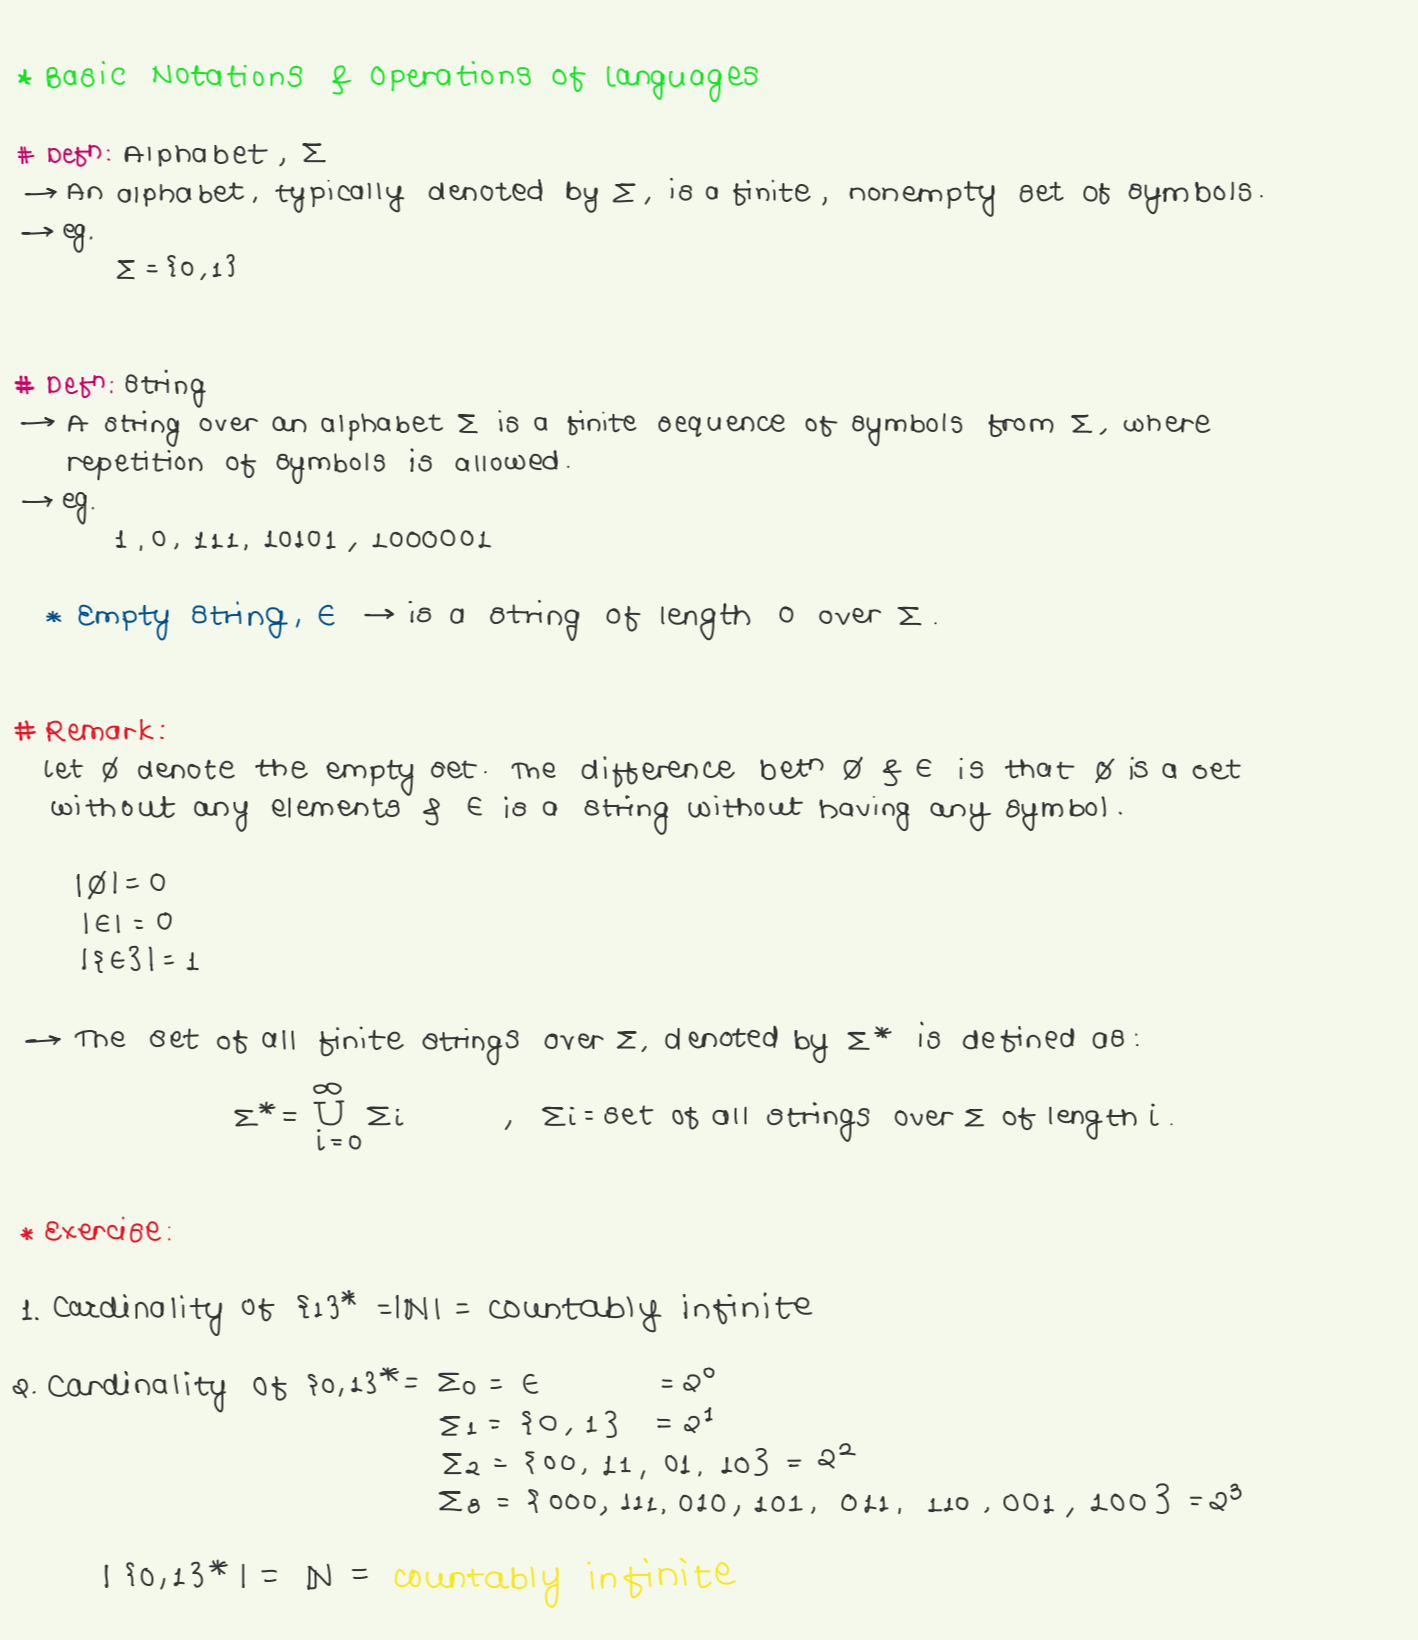 * Basic Notations & Operations of languages
# Defn: Alphabet, Σ
→ An alphabet, typically denoted by Σ, is a finite, nonempty set of symbols.
→ eg.
Σ = {0,1}
# Defn: String
→ A string over an alphabet Σ is a finite sequence of symbols from Σ, where
repetition of symbols is allowed.
→ eg.
1, 0, 111, 10101, 1000001
* Empty String, ∈ → is a string of length 0 over Σ.
# Remark:
Let ∅ denote the empty set. The difference betn ∅ & ∈ is that ∅ is a set
without any elements & ∈ is a string without having any symbol.
|∅| = 0
|∈| = 0
|{∈}| = 1
→ The set of all finite strings over Σ, denoted by Σ* is defined as:
∞
Σ* = U Σi , Σi = set of all strings over Σ of length i.
i=0
* Exercise:
1. Cardinality of {1}* = |ℕ| = countably infinite
2. Cardinality of {0,1}* = Σ0 = ∈ = 2⁰
Σ1 = {0,1} = 2¹
Σ2 = {00, 11, 01, 10} = 2²
Σ3 = {000, 111, 010, 101, 011, 110, 001, 100} = 2³
|{0,1}*| = ℕ = countably infinite